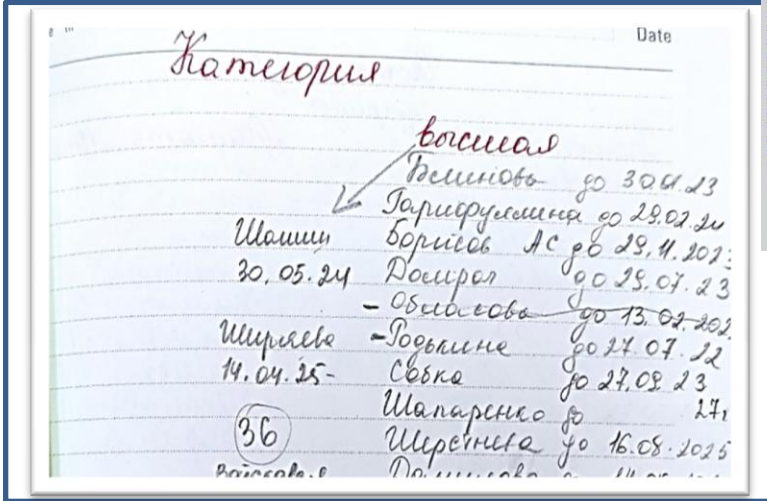 Date
Категория
высшая
Блинова до 30.01.23
Гарифуллина до 29.02.24
Шашин Борисов АС до 29.11.2023
30.05.24 до 29.07.23
- до 13.02.202
Ширяева - Родькина до 27.07.22
14.04.25- Собка до 27.09.23
Шапаренко до 27.
36 до 16.08.2025